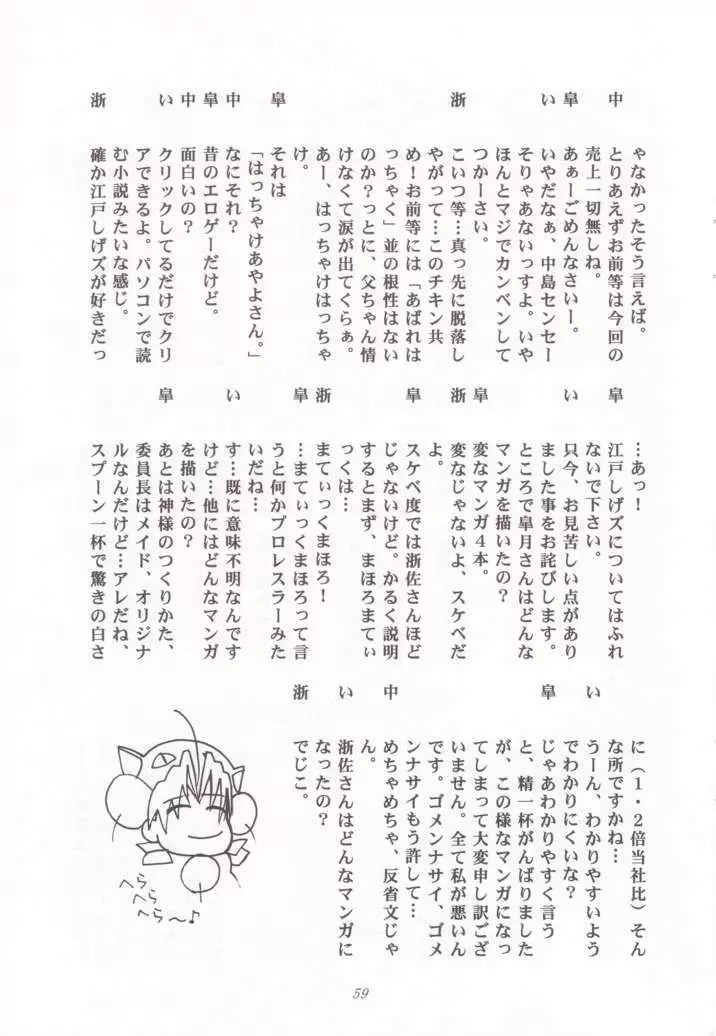 ゃなかったそう言えば。
中 とりあえずお前等は今回の
売上一切無しね。
皐 あぁーごめんなさいー。
い いやだなぁ、中島センセー
そりゃあないっすよ。いや
ほんとマジでカンベンして
つかーさい。
浙 こいつ等…真っ先に脱落し
やがって…このチキン共
め!お前等には「あばれは
っちゃく」並の根性はない
のか?っとに、父ちゃん情
けなくて涙が出てくらぁ。
あー、はっちゃけはっちゃ
け。
皐 それは
「はっちゃけあやよさん。」
中 なにそれ?
皐 昔のエロゲーだけど。
中 面白いの?
い クリックしてるだけでクリ
アできるよ。パソコンで読
む小説みたいな感じ。
浙 確か江戸しげズが好きだっ
…あっ!
皐 江戸しげズについてはふれ
ないで下さい。
い 只今、お見苦しい点があり
ました事をお詫びします。
ところで皐月さんはどんな
マンガを描いたの?
皐 変なマンガ4本。
浙 変なじゃないよ、スケベだ
よ。
皐 スケベ度では浙佐さんほど
じゃないけど。かるく説明
するとまず、まほろまてぃ
っくは…
浙 まてぃっくまほろ!
皐 …まてぃっくまほろって言
うと何かプロレスラーみた
いだね…
い す…既に意味不明なんです
けど…他にはどんなマンガ
を描いたの?
皐 あとは神様のつくりかた、
委員長はメイド、オリジナ
ルなんだけど…アレだね、
スプーン一杯で驚きの白さ
に(1・2倍当社比)そん
な所ですかね…
い うーん、わかりやすいよう
でわかりにくいな?
皐 じゃあわかりやすく言う
と、精一杯がんばりました
が、この様なマンガになっ
てしまって大変申し訳ござ
いません。全て私が悪いん
です。ゴメンナサイ、ゴメ
ンナサイもう許して…
中 めちゃめちゃ、反省文じゃ
ん。
い 浙佐さんはどんなマンガに
なったの?
浙 でじこ。
へら
へら
へら〜♪
59